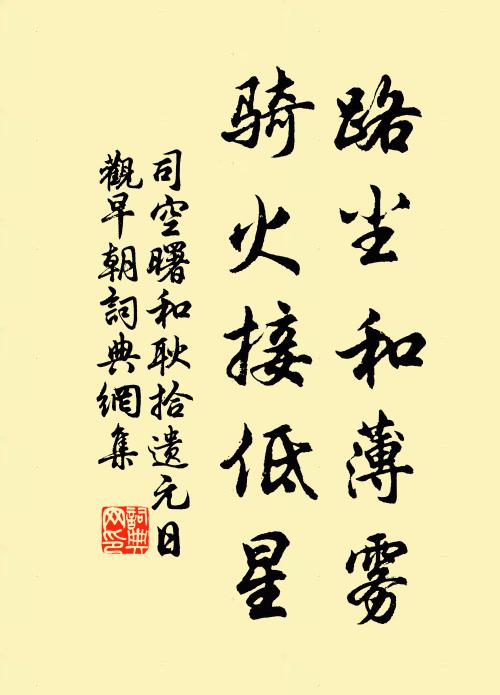 路尘和薄雾
骑火接低星
司空曙和耿拾遺元日
觀早朝詞典網集
詞典
网印